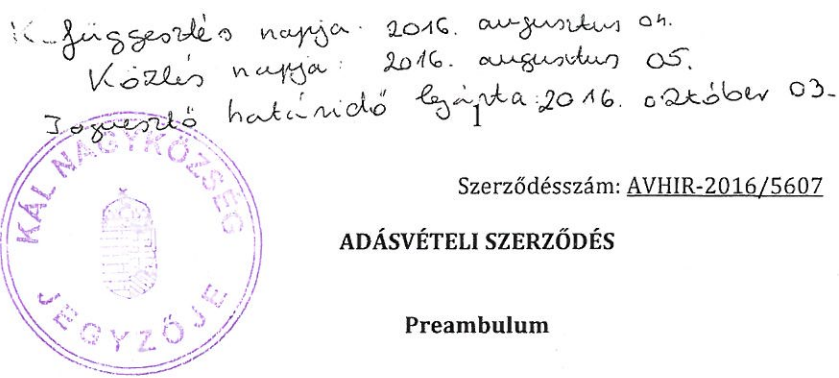 Kifüggesztés napja: 2016. augusztus 04.
Közlés napja: 2016. augusztus 05.
Jogvesztő határidő lejárta: 2016. október 03.
1
KÁL NAGYKÖZSÉG JEGYZŐJE
Szerződésszám: AVHIR-2016/5607
ADÁSVÉTELI SZERZŐDÉS
Preambulum